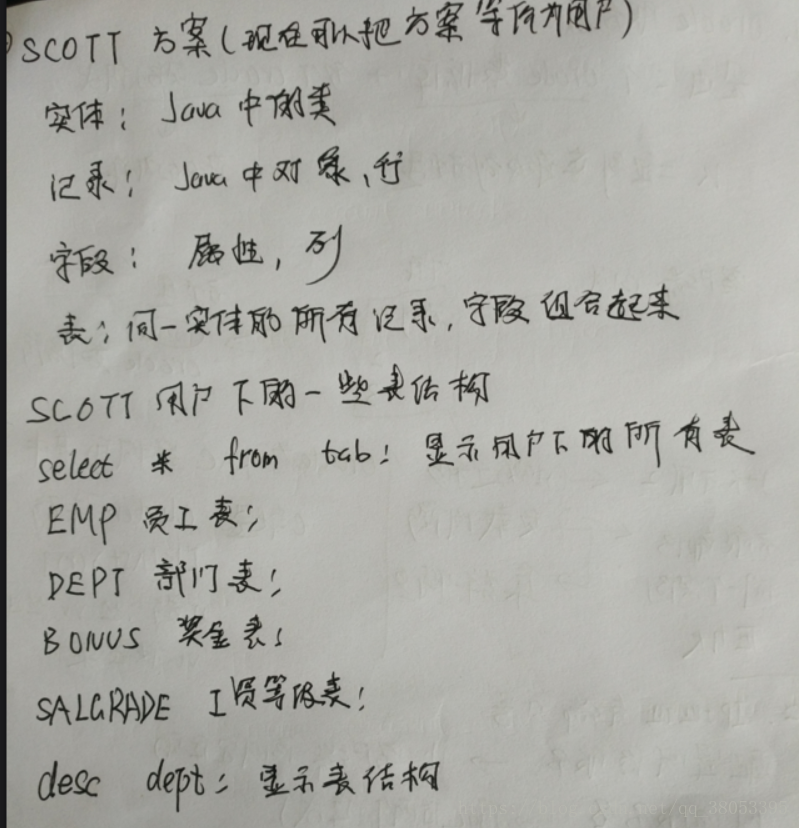 SCOTT 方案(现在可以把方案等价为用户)
实体: Java中的类
记录: Java中对象、行
字段: 属性, 列
表: 同一实体的所有记录, 字段组合起来
SCOTT 用户下的一些表结构
select * from tab: 显示用户下的所有表
EMP 员工表;
DEPT 部门表;
BONUS 奖金表;
SALGRADE 工资等级表;
desc dept: 显示表结构